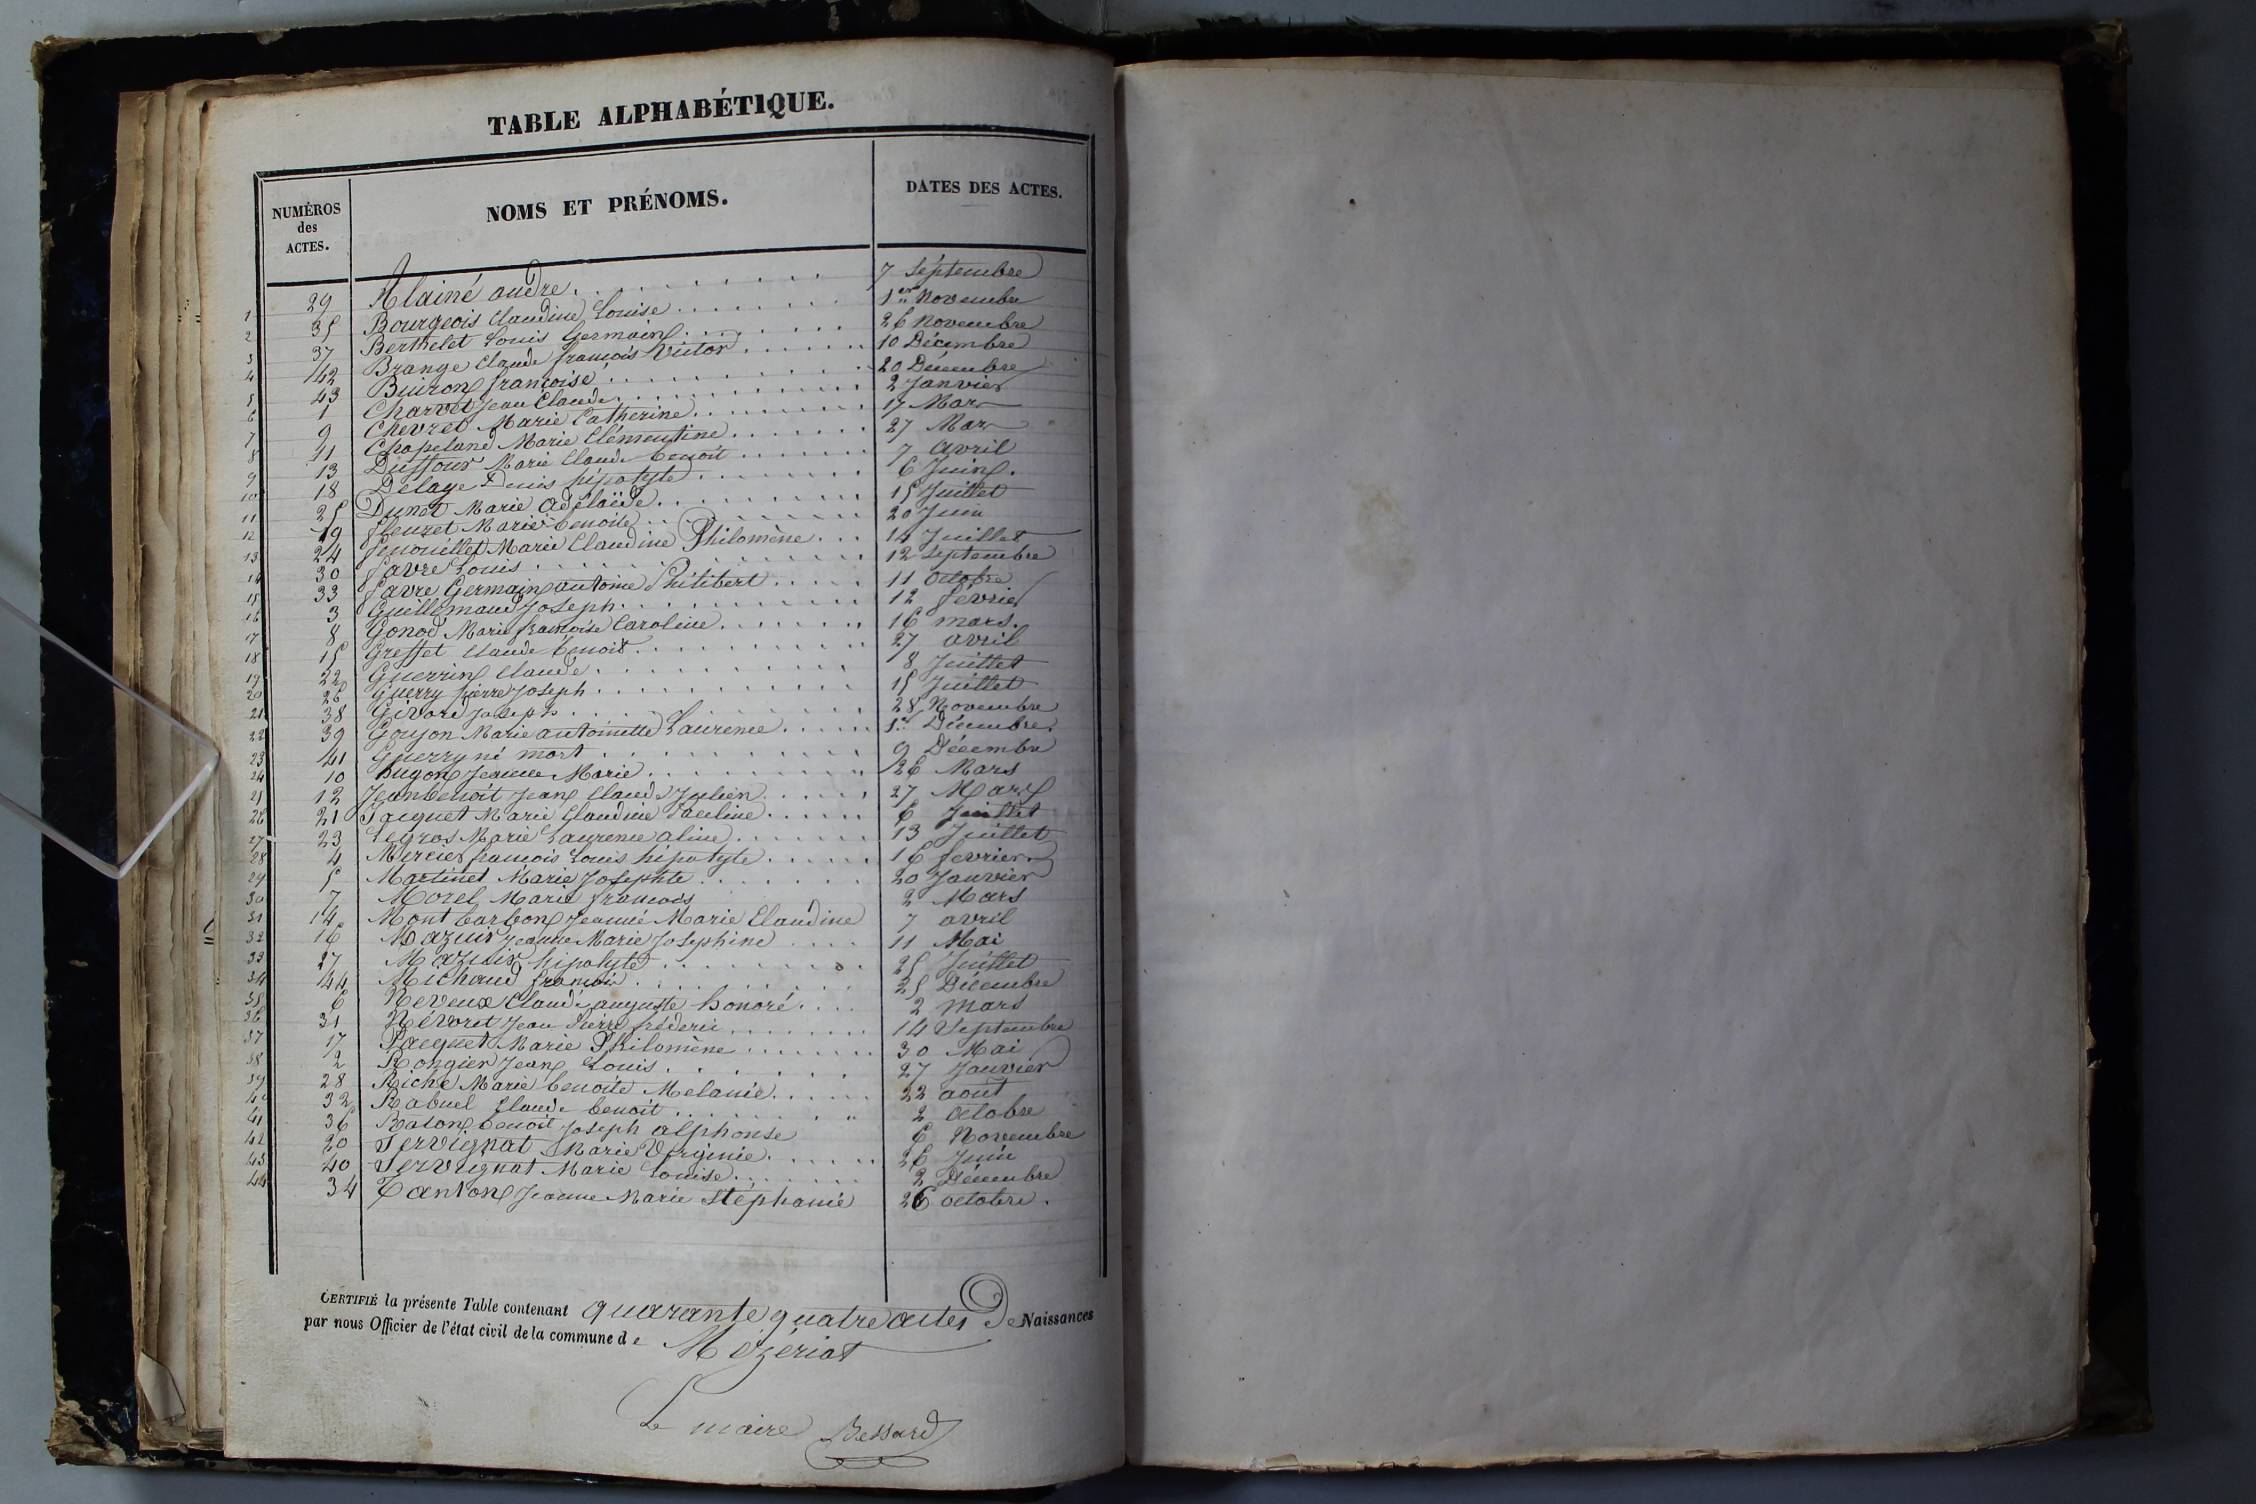 TABLE ALPHABÉTIQUE.
NUMÉROS des ACTES. NOMS ET PRÉNOMS. DATES DES ACTES.
1 29 Alainé andre 7 septembre
2 35 Bourgeois Claudine Louise 1er Novembre
3 37 Berthelet Louis Germain 26 Novembre
4 42 Brange Claude françois Victor 10 Décembre
5 43 Buiron françoise 20 Décembre
6 1 Charvet Jean Claude 2 Janvier
7 9 Chevret Marie Catherine 17 Mars
8 11 Chapeland Marie Clémentine 27 Mars
9 13 Duffour Marie Claude benoit 7 avril
10 18 Delaye Denis hipolyte 6 Juin.
11 25 Dunet Marie Adélaïde 15 Juillet
12 19 fleuret Marie benoite 20 Juin
13 24 fenouillet Marie Claudine Philomène 14 Juillet
14 30 favre Louis 12 septembre
15 33 favre Germain antoine Philibert 11 octobre
16 3 Guillemaud Joseph 12 février
17 8 Gonod Marie françoise Caroline 16 mars.
18 15 Greffet Claude benoit 27 avril
19 22 Guerrin Claude 8 Juillet
20 26 Guerry pierre Joseph 15 Juillet
21 38 Givord Joseph 28 Novembre
22 39 Goujon Marie antoinette Laurence 1er Décembre
23 41 Guerry né mort 9 Décembre
24 10 hugon Jeanne Marie 26 Mars
25 12 Jeanbenoit Jean Claude Julien 27 Mars
26 21 Jacquet Marie Claudine Pauline 6 Juillet
27 23 Legros Marie Laurence aline 13 Juillet
28 4 Mercier francois Louis hipolyte 16 fevrier
29 5 Martinet Marie Josephte 20 Janvier
30 7 Morel Marie francois 2 Mars
31 14 Montbarbon Jeanne Marie Claudine 7 avril
32 16 Mazuir Jeanne Marie Josephine 11 Mai
33 27 Mazuir hipolyte 25 Juillet
34 44 Michaud françois 25 Décembre
35 6 Neveux Claude auguste honoré 2 mars
36 31 Névoret Jean Pierre fréderic 14 Septembre
37 17 Pacquet Marie Philomène 30 Mai
38 2 Rongier Jean Louis 27 Janvier
39 28 Riche Marie benoite Melanie 22 aout
40 32 Rabuel Claude benoit 2 octobre
41 36 Raton benoit Joseph alphonse 6 Novembre
42 20 Servignat Marie Virginie 26 Juin
43 40 Servignat Marie Louise 2 Décembre
44 34 Tanton Jeanne Marie Stéphanie 26 octobre.
CERTIFIÉ la présente Table contenant quarante quatre actes De Naissances
par nous Officier de l'état civil de la commune de Mézériat
Le maire Bessard